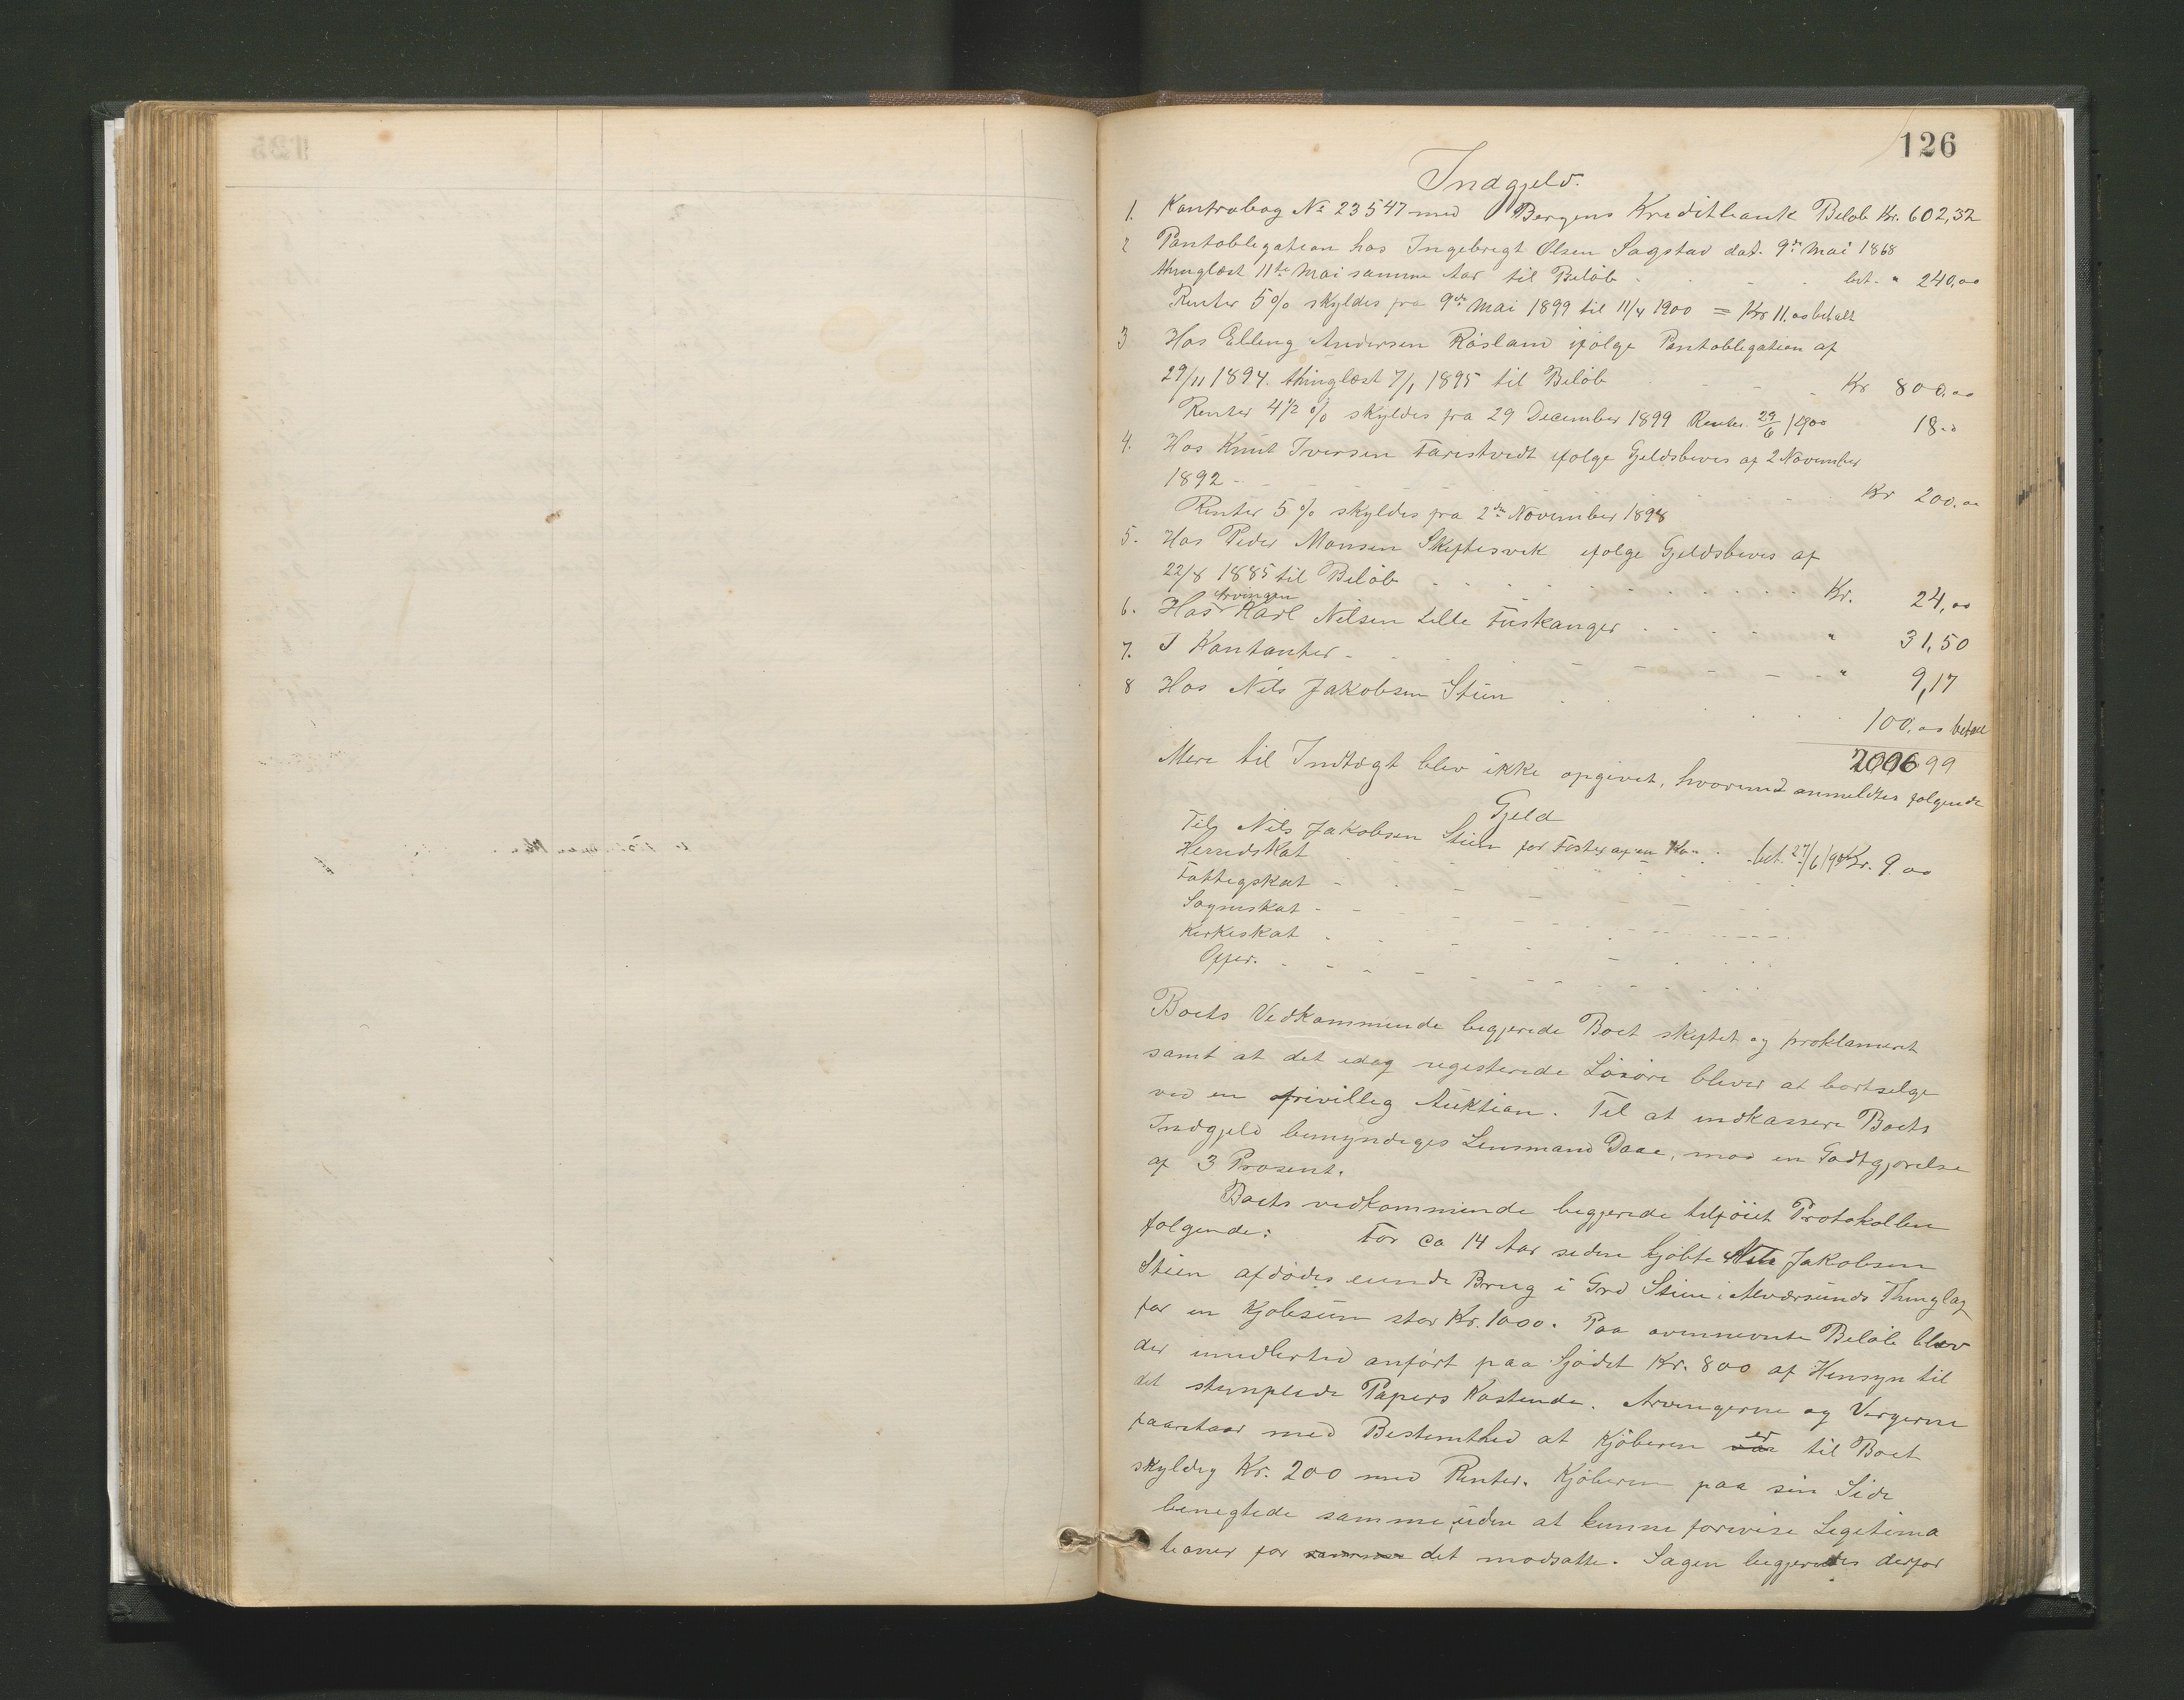 126
Indgjeld.
1. Kontrabog No 23547 med Bergens Kreditbank Beløb Kr. 602,32
2 Pantobligation hos Ingebrigt Olsen Sagstad dat. 9de Mai 1868
thinglæst 11te Mai samme Aar til Beløb - - - bet. " 240,00
Renter 5% skyldes fra 9de Mai 1899 til 11/4 1900 = Kr 11.00 betalt
3 Hos Elling Andersen Røsland ifølge Pantobligation af
29/11 1894. thinglæst 7/1 1895 til Beløb - - - Kr 800,00
Renter 4 1/2 % skyldes fra 29 December 1899 Renter 29/6 1900 18.00
4. Hos Knut Iversen ifølge Gjeldsbevis af 2 November
1892 - - - Kr 200.00
Renter 5% skyldes fra 2den November 1898
5. Hos Peder Monsen Skeftesvik ifølge Gjeldsbevis af
22/8 1885 til Beløb - - - Kr. 24,00
6. Hos Arvingen Karl Nilsen Lille Fuskanger - - - " 31,50
7. I Kontanter - - - " 9,17
8 Hos Nils Jakobsen Stien - - - 100,00 betalt
2006 99
Mere til Indtægt blev ikke opgivet, hvorimod anmeldtes følgende
Gjeld
Til Nils Jakobsen Stien for Foster af en Ko - bet. 27/6 1900 Kr. 9.00
Herredskat
Fattigskat - - -
Sognskat - - -
Kirkeskat - - -
Offer. - - -
Boets Vedkommende begjerede Boet skiftet og proklameret
samt at det idag registerede Løsøre bliver at bortselge
ved en frivillig Auktion. Til at indkassere Boets
Indgjeld bemyndiges Lensmand Daae, mod en Godtgjørelse
af 3 Prosent.
Boets vedkommende begjerede tilføiet Protokollen
følgende: For ca 14 Aar siden kjøbte Nils Jakobsen
Stien afdødes eiende Brug i Grd Stien i Alversunds Thinglag
for en Kjøbesum stor Kr. 1000. Paa ovennevnte Beløb blev
der imidlertid anført paa Sjødet Kr. 800 af Hensyn til
det stemplede Papirs Kostende. Arvingerne og Vergerne
paastaar med Bestemthed at Kjøberen var er til Boet
skyldig Kr. 200 med Renter. Kjøberen paa sin Side
benegtede samme, uden at kunne forevise Legitima
tioner for samme det modsatte. Sagen begjeredes derfor